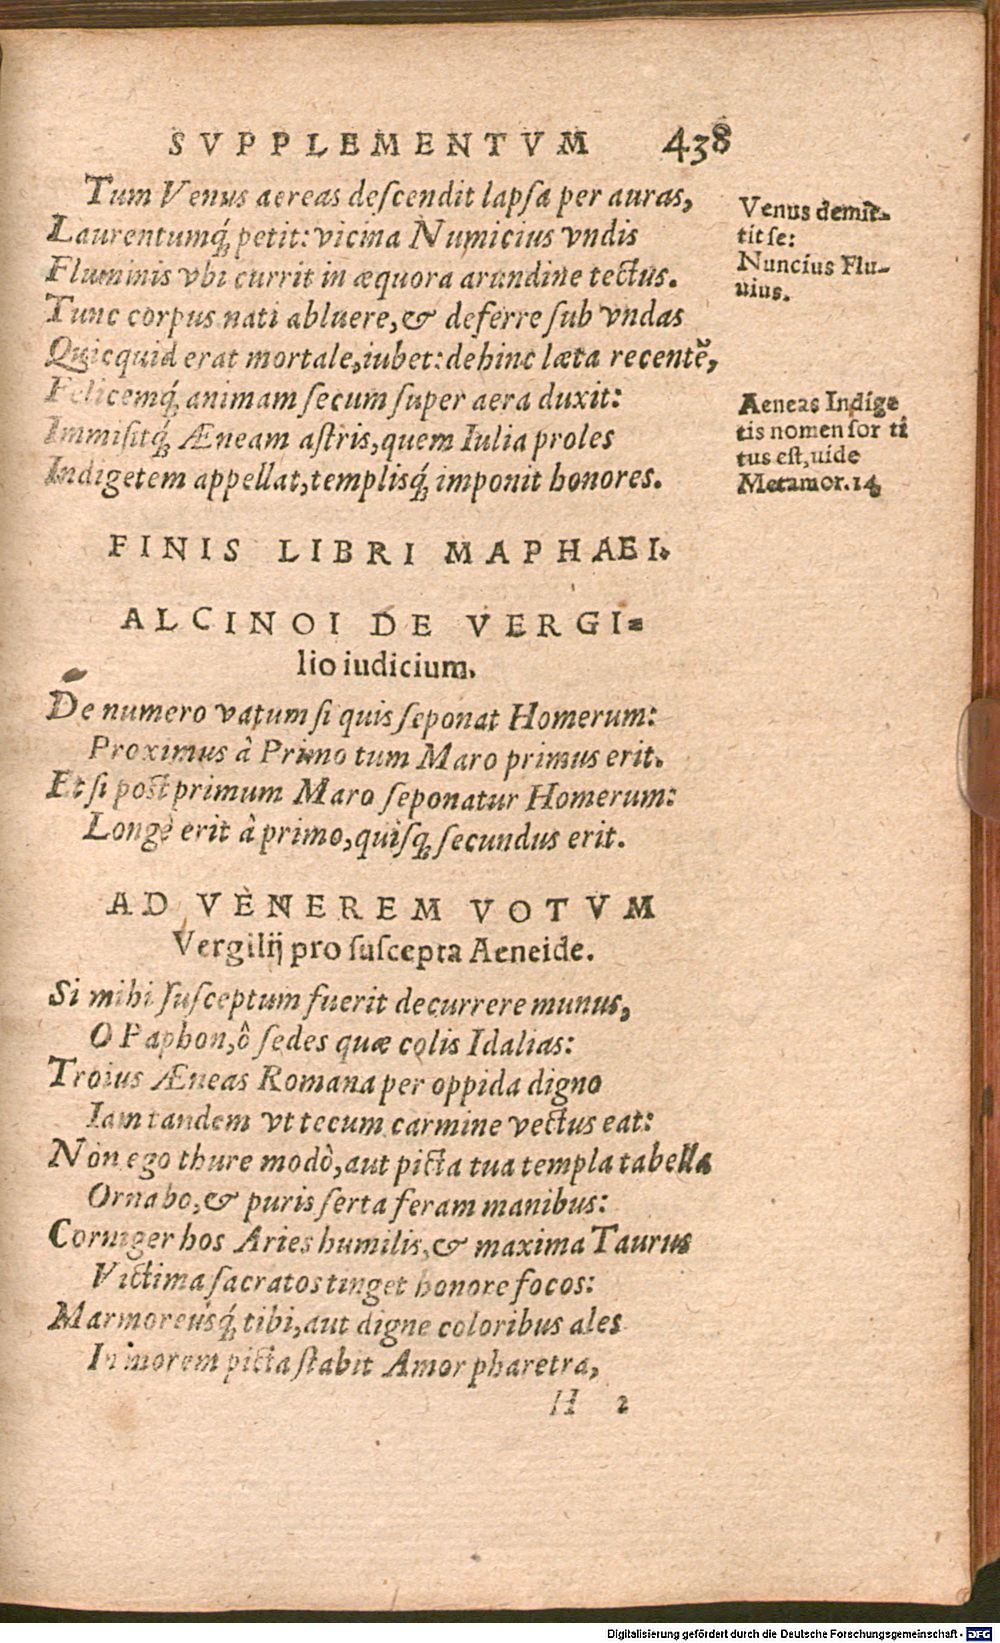 SVPPLEMENTVM 438
Tum Venus aereas deſcendit lapſa per auras,
Laurentumq́; petit: vicina Numicius vndis
Fluminis vbi currit in æquora arundine tectus.
Tunc corpus nati abluere, & deferre ſub vndas
Quicquid erat mortale, iubet: dehinc læta recentẽ,
Felicemq́; animam ſecum ſuper aera duxit:
Immiſitq́; Æneam aſtris, quem Iulia proles
Indigetem appellat, templisq́; imponit honores.
Venus demit-
tit ſe:
Nuncius Flu-
uius.
Aeneas Indige
tis nomen ſor ti
tus eſt, uide
Metamor. 14.
FINIS LIBRI MAPHAEI.
ALCINOI DE VERGI-
lio iudicium.
De numero vatum ſi quis ſeponat Homerum:
Proximus à Primo tum Maro primus erit.
Et ſi poſt primum Maro ſeponatur Homerum:
Longè erit à primo, quiſq; ſecundus erit.
AD VENEREM VOTVM
Vergilij pro ſuſcepta Aeneide.
Si mihi ſuſceptum fuerit decurrere munus,
O Paphon, ô ſedes quæ colis Idalias:
Troius Æneas Romana per oppida digno
Iam tandem vt tecum carmine vectus eat:
Non ego thure modò, aut picta tua templa tabella
Ornabo, & puris ſerta feram manibus:
Corniger hos Aries humilis, & maxima Taurus
Victima ſacratos tinget honore focos:
Marmoreusq́; tibi, aut digne coloribus ales
In morem picta ſtabit Amor pharetra,
H 2
Digitalisierung gefördert durch die Deutsche Forschungsgemeinschaft - DFG